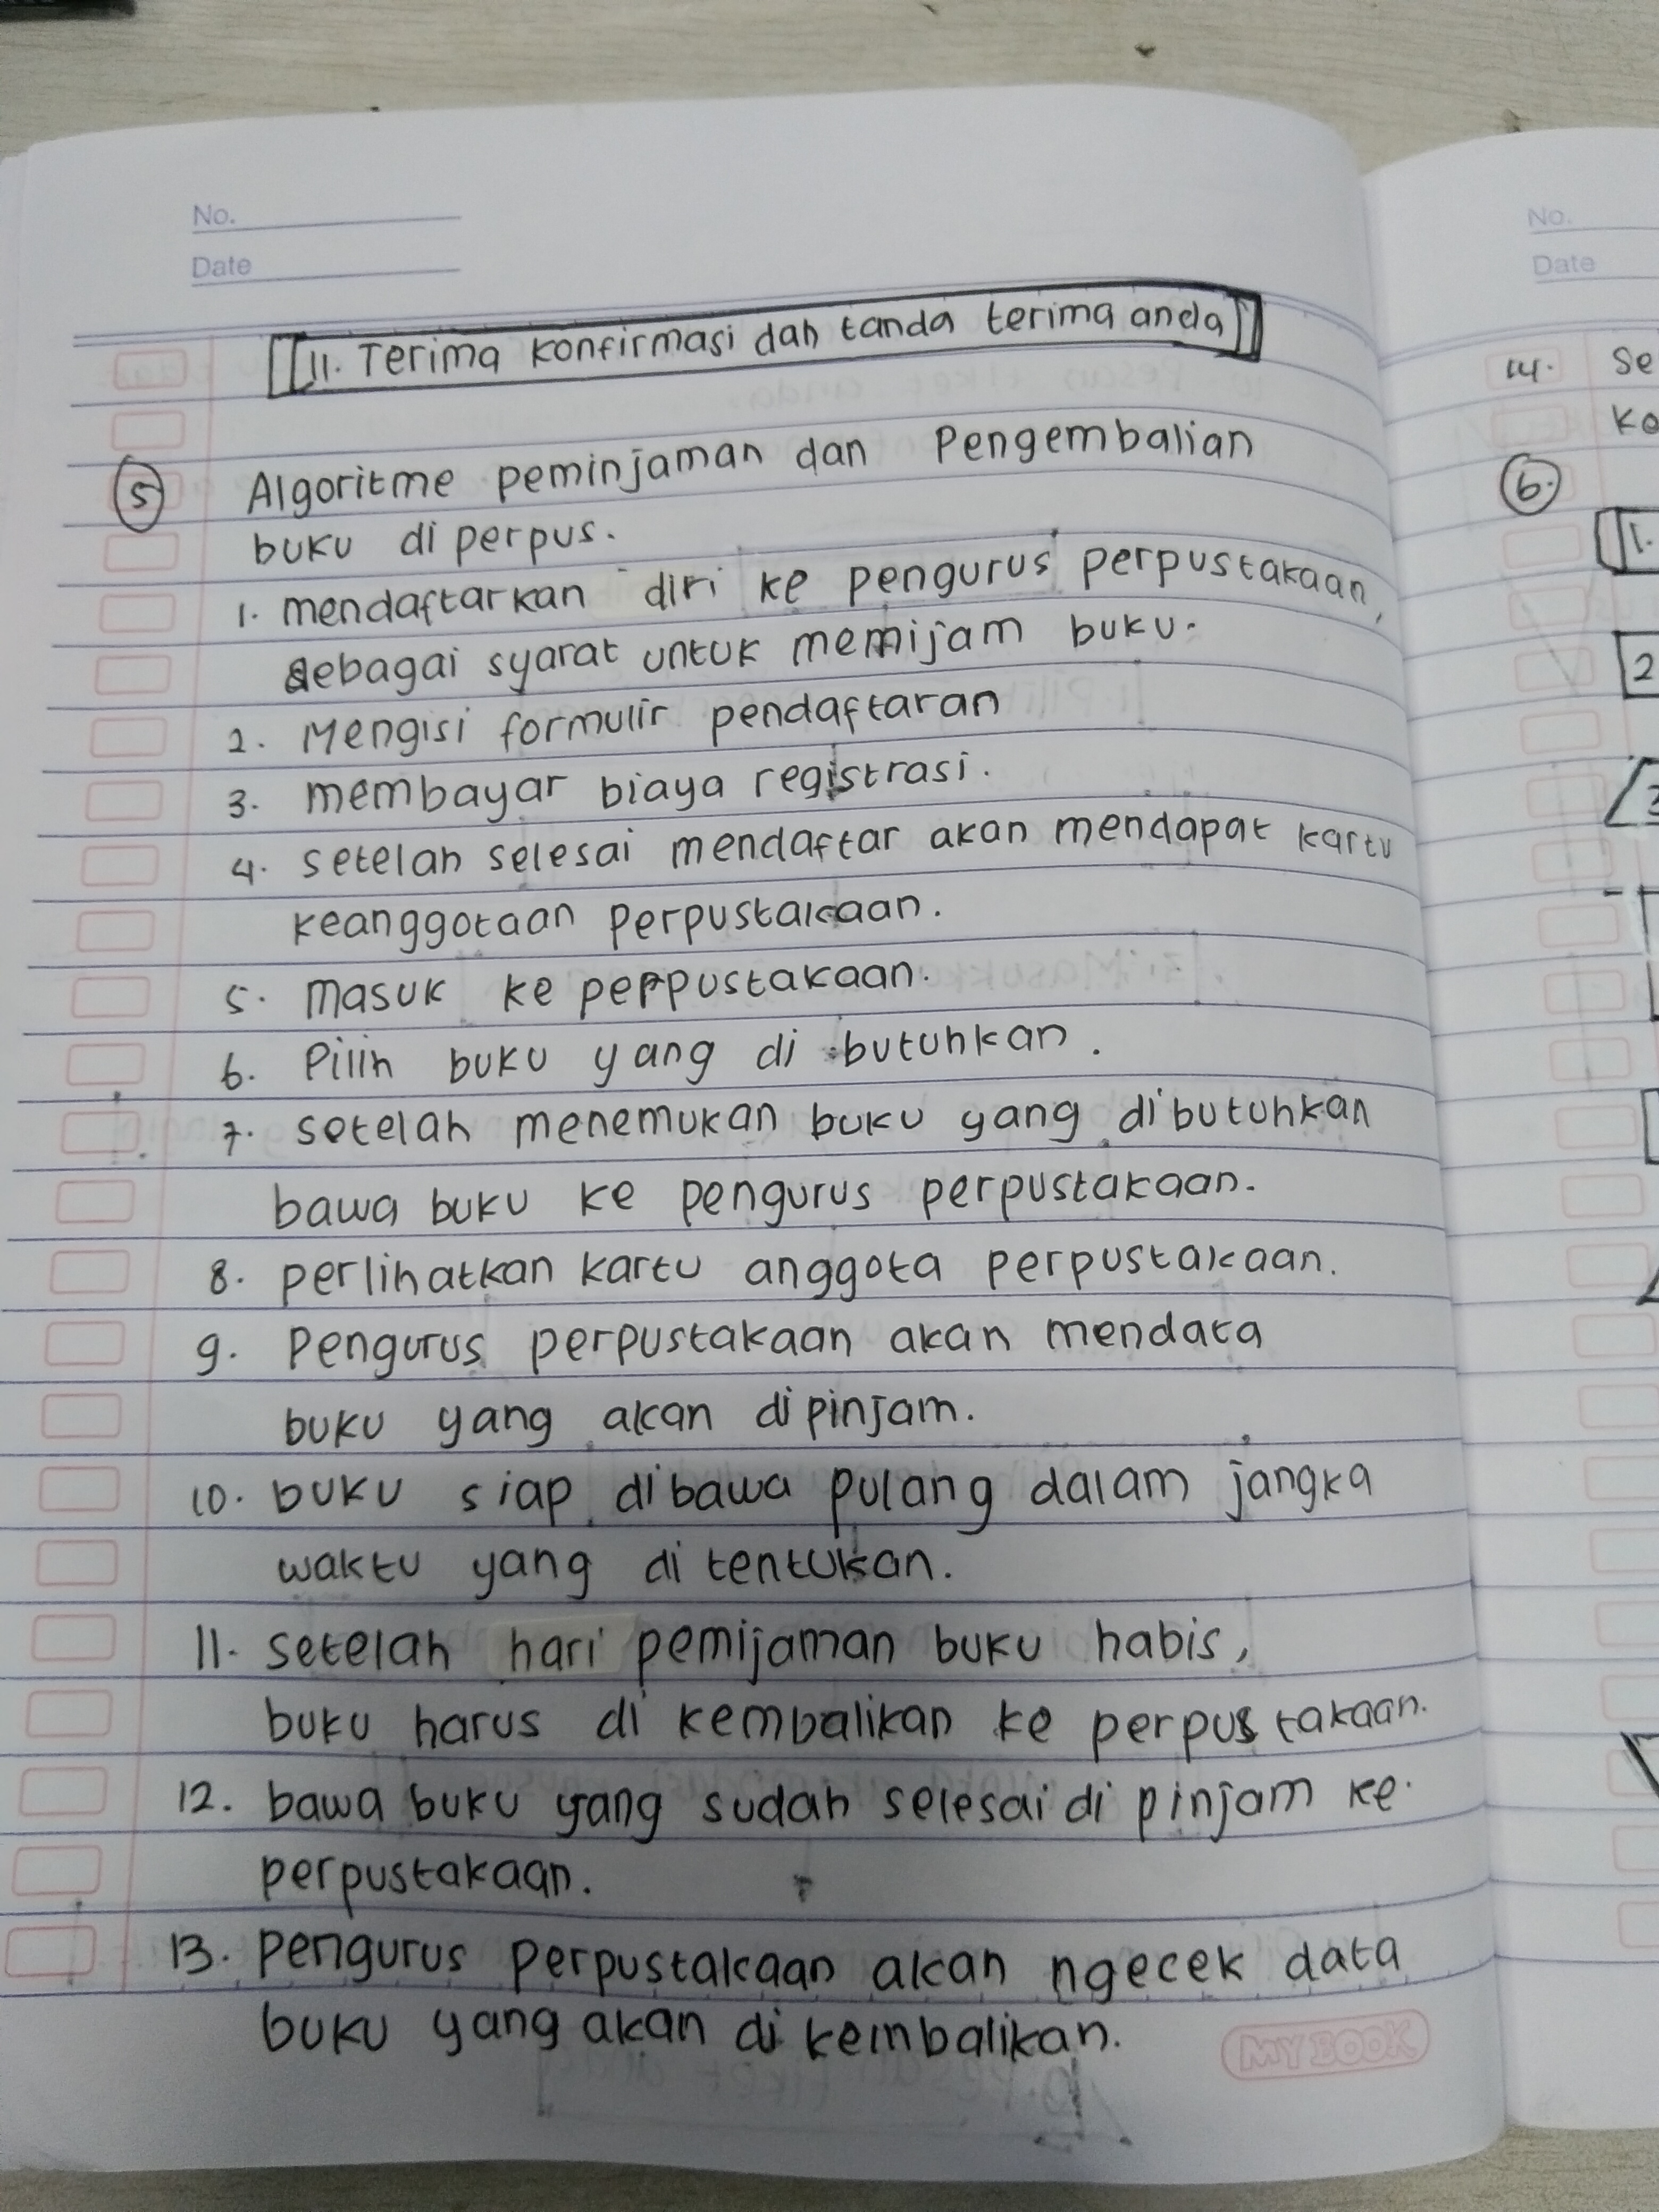 No.
Date
11. Terima konfirmasi dan tanda terima anda
5 Algoritme peminjaman dan Pengembalian
buku di perpus.
1. mendaftarkan diri ke pengurus perpustakaan,
sebagai syarat untuk memijam buku.
2. Mengisi formulir pendaftaran
3. membayar biaya registrasi.
4. setelah selesai mendaftar akan mendapat kartu
keanggotaan perpustakaan.
5. masuk ke perpustakaan.
6. Pilih buku yang di butuhkan.
7. setelah menemukan buku yang dibutuhkan
bawa buku ke pengurus perpustakaan.
8. perlihatkan kartu anggota perpustakaan.
9. Pengurus perpustakaan akan mendata
buku yang akan dipinjam.
10. buku siap dibawa pulang dalam jangka
waktu yang di tentukan.
11. setelah hari pemijaman buku habis,
buku harus di kembalikan ke perpustakaan.
12. bawa buku yang sudah selesai di pinjam ke
perpustakaan.
13. pengurus perpustakaan akan ngecek data
buku yang akan di kembalikan.
MY BOOK
No.
Date
14. Se
Ke
6.
1.
2
3